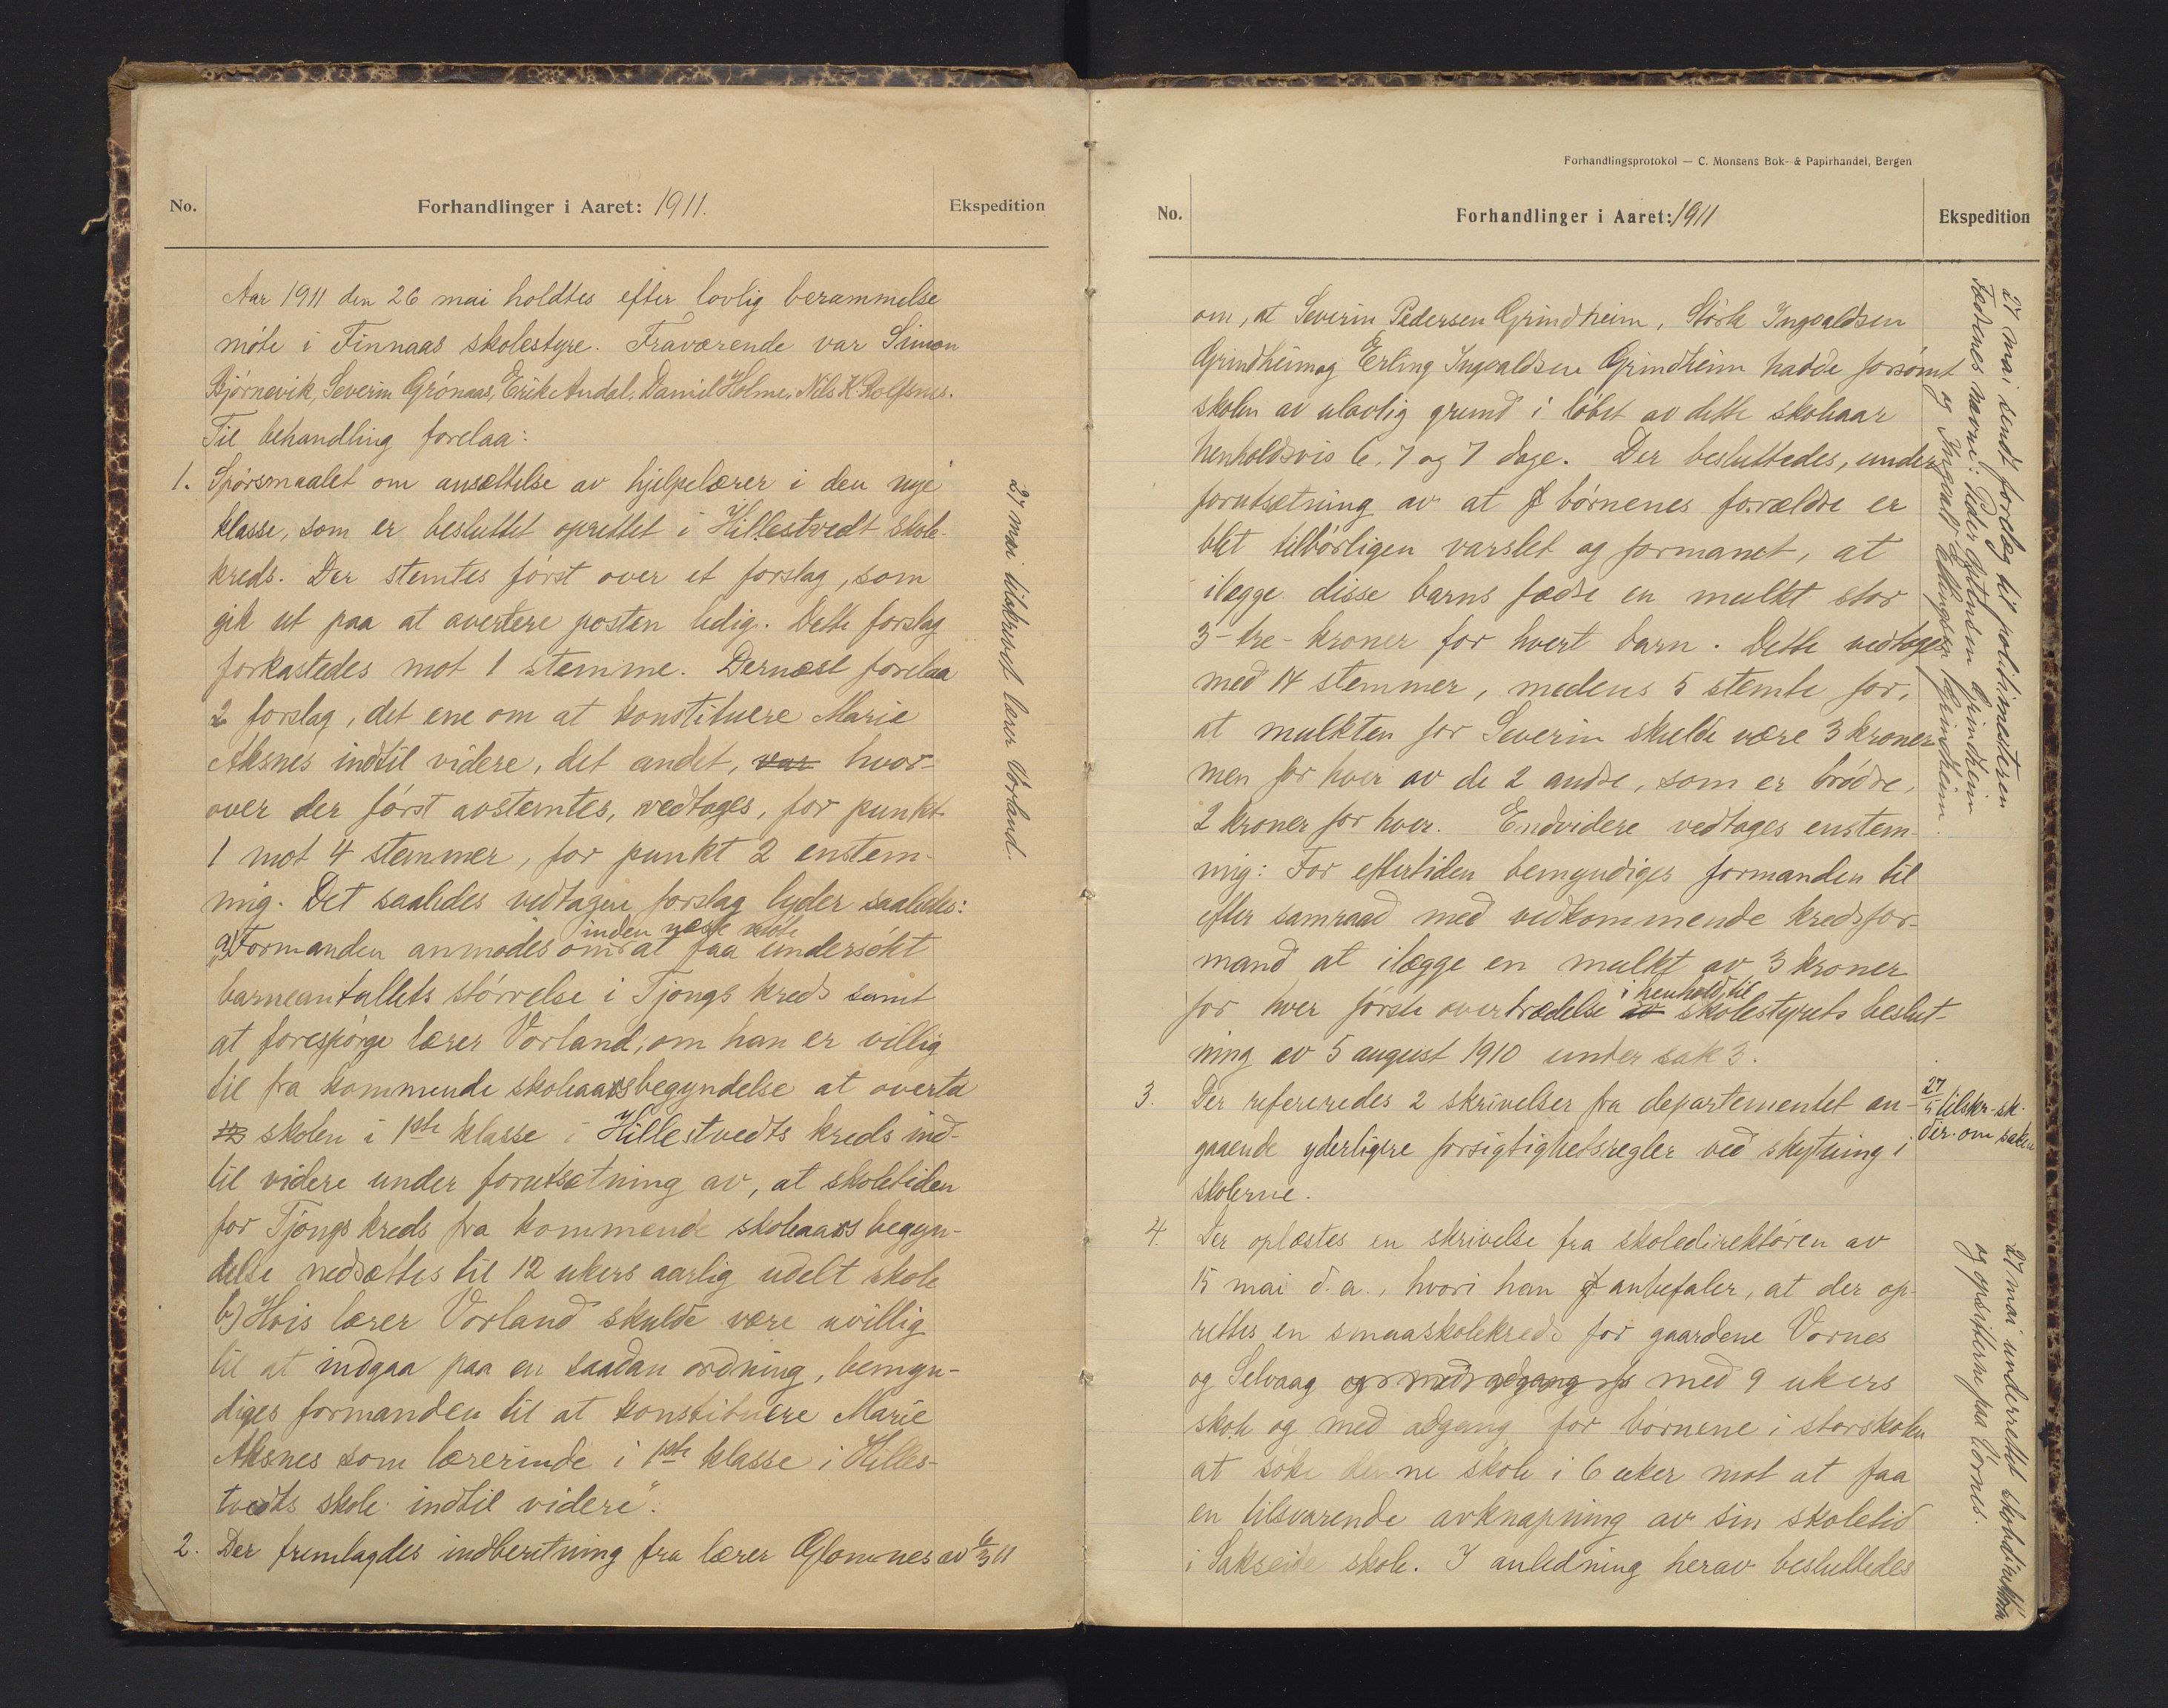 No.
Forhandlinger i Aaret: 1911.
Ekspedition
Aar 1911 den 26 mai holdtes efter lovlig berammelse
møte i Finnaas skolestyre. Fraværende var Simon
Bjørnevik, Severin Grønaas, Erik Andal, Daniel Holme, Nils K Rolfsnes.
Til behandling forelaa:
1. Spørsmaalet om ansættelse av hjelpelærer i den nye
klasse, som er besluttet oprettet i Hillestvedt skole-
kreds. Der stemtes først over et forslag, som
gik ut paa at avertere posten ledig. Dette forslag
forkastedes mot 1 stemme. Dernæst forelaa
2 forslag, det ene om at konstituere Marie
Aksnes indtil videre, det andet, var hvor-
over der først avstemtes, vedtages, for punkt
1 mot 4 stemmer, for punkt 2 enstem-
mig. Det saaledes vedtagen forslag lyder saaledes:
inden næste møte
„a) Formanden anmodes om at faa undersøkt
barneantallets størrelse i Tjongs kreds samt
at forespørge lærer Vorland, om han er villig
til fra kommende skoleaarsbegyndelse at overta
skolen i 1ste klasse i Hillestvedts kreds ind-
til videre under forutsætning av, at skoletiden
for Tjongs kreds fra kommende skoleaars begyn-
delse nedsættes til 12 ukers aarlig udelt skole
b) Hvis lærer Vorland skulde være uvillig
til at indgaa paa en saadan ordning, bemyn-
diges formanden til at konstituere Marie
Aksnes som lærerinde i 1ste klasse i Hilles-
tvedts skole indtil videre".
2. Der fremlagdes indberetning fra lærer Glomnes av 6/3 11
27 mai tilskrevet lærer Vorland.
Forhandlingsprotokol — C. Monsens Bok- & Papirhandel, Bergen
No.
Forhandlinger i Aaret: 1911
Ekspedition
om, at Severin Pedersen Grindheim, Størk Ingvaldsen
Grindheim og Erling Ingvaldsen Grindheim hadde forsømt
skolen av ulovlig grund i løbet av dette skoleaar
henholdsvis 6, 7 og 7 dage. Der besluttedes, under
forutsætning av at f børnenes forældre er
blit tilbørligen varslet og formanet, at
ilægge disse barns fædre en mulkt stor
3 - tre - kroner for hvert barn. Dette vedtages
med 14 stemmer, medens 5 stemte for,
at mulkten for Severin skulde være 3 kroner
men for hver av de 2 andre, som er brødre,
2 kroner for hver. Endvidere vedtages enstem-
mig: For eftertiden bemyndiges formanden til
efter samraad med vedkommende kredsfor-
mand at ilægge en mulkt av 3 kroner
i henhold til
for hver første overtrædelse av skolestyrets beslut-
ning av 5 august 1910 under sak 3.
3. Der refereredes 2 skrivelser fra departementet an-
gaaende yderligere forsigtighetsregler ved skytning i
skolerne.
4. Der oplæstes en skrivelse fra skoledirektøren av
15 mai d. a., hvori han f anbefaler, at der op-
rettes en smaaskolekreds for gaardene Vornes
og Selvaag og med adgang fo med 9 ukers
skole og med adgang for børnene i storskolen
at søke denne skole i 6 uker mot at faa
en tilsvarende avknapning av sin skoletid
i Sakseide skole. I anledning herav besluttedes
27 mai sendt forelæg til politimesteren
Fædrenes navne: Peder Østensen Grindheim
og Ingvald Erlingsen Grindheim.
27/5 tilskr. sk.
dir. om saken
27 mai underrettet skoledirektøren
og opsitterne paa Vornes.